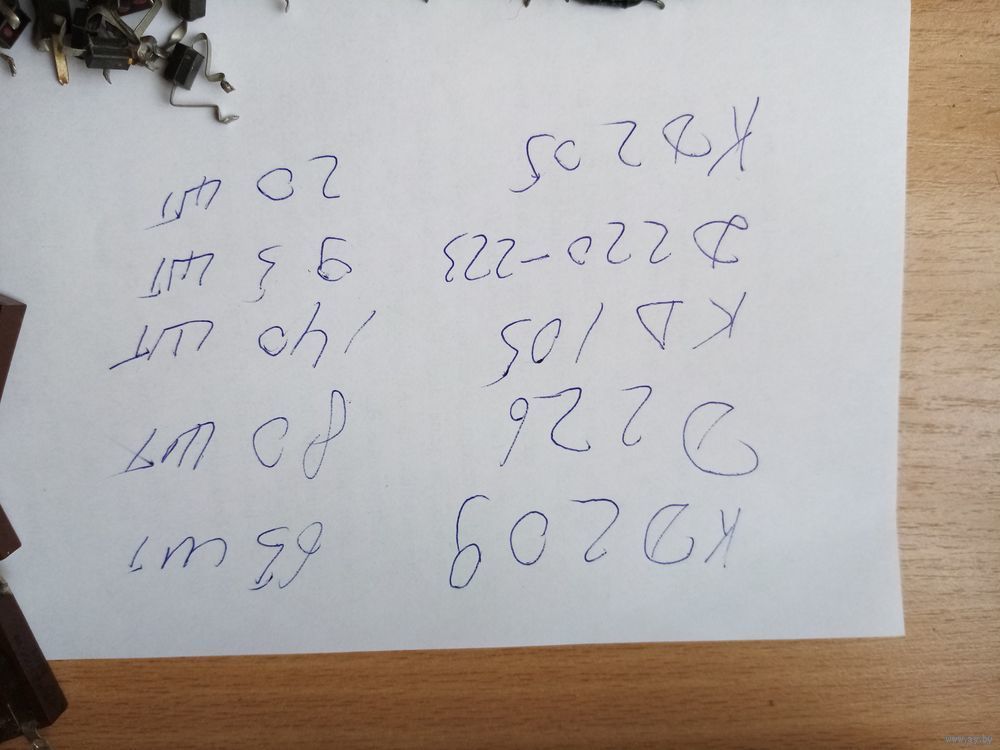 КД 209 65 шт
Д 226 80 шт
КД 105 140 шт
Д 220-223 93 шт
КД 205 20 шт
www.ay.by